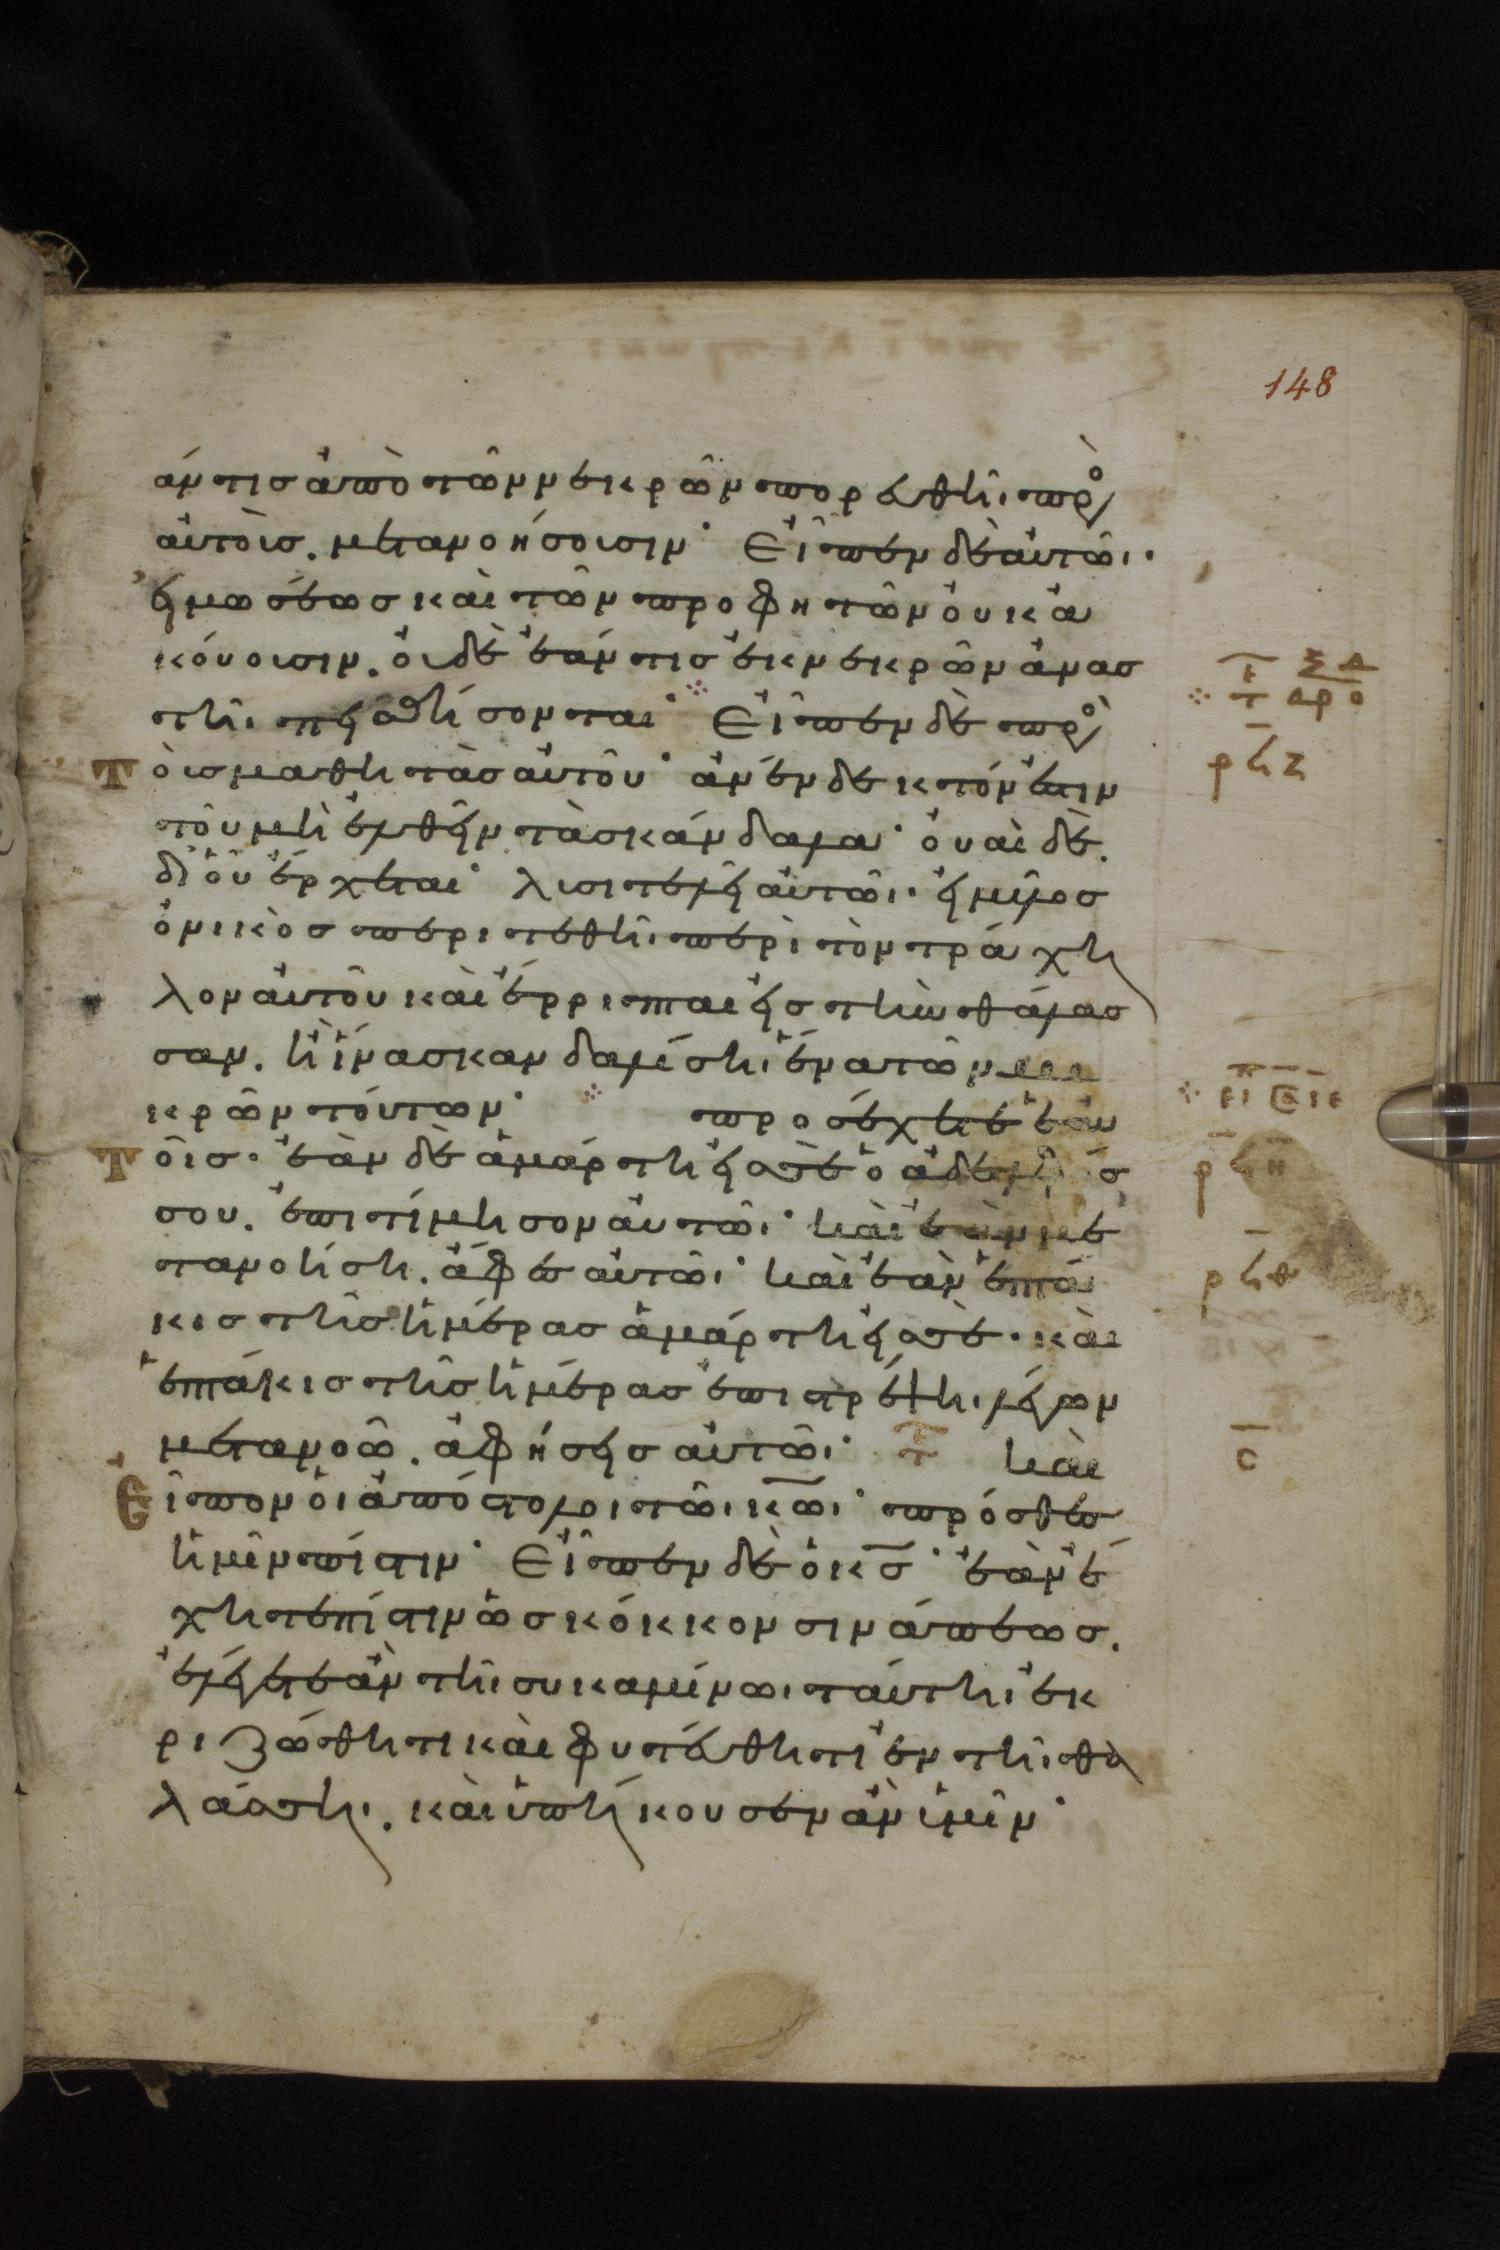 148
άν τις ἀπὸ τῶν νεκρῶν πορευθῆι πρὸ
αὐτοὺς. μετανοήσουσιν· Εἶπεν δὲ αὐτῶι·
εἰ μωσέως καὶ τῶν προφητῶν οὐκ ἀ
κούουσιν. οὐδὲ ἐάν τις ἐκ νεκρῶν ἀνασ
τῆι πεισθήσονται· Εἶπεν δὲ πρὸ
τοὺς μαθητὰς αὐτοῦ· ἀνένδεκτόν ἐστιν
τοῦ μὴ ἐλθεῖν τὰ σκάνδαλα· οὐαὶ δὲ.
δι' οὗ ἔρχεται· λυσιτελεῖ αὐτῶι· εἰ μύλος
ὀνικὸς περιτεθῆι περὶ τὸν τράχη
λον αὐτοῦ καὶ ἔρριπται εἰς τὴν θάλασ
σαν. ἢ ἵνα σκανδαλίσηι ἕνα τῶν μι
κρῶν τούτων· προσέχετε ἑαυ
τοῖς· ἐὰν δὲ ἁμάρτη εἰς σὲ ὁ ἀδελφός
σου. ἐπιτίμησον αὐτῶι· καὶ ἐὰν με
τανοήση. ἄφες αὐτῶι· καὶ ἐὰν ἑπτά
κις τῆς ἡμέρας ἁμάρτη εἰς σὲ· καὶ
ἑπτάκις τῆς ἡμέρας ἐπιστρέψηι λέγων
μετανοῶ. ἀφήσεις αὐτῶι· καὶ
εἶπον οἱ ἀπόστολοι τῶι κ̅ω̅ι· πρόσθες
ἡμῖν πίστιν· Εἶπεν δὲ ὁ κ̅ς̅· ἐὰν ἔ
χητε πίστιν ὡς κόκκον σινάπεως.
ἐλέγετε ἂν τῆι συκαμίνωι ταύτηι ἐκ
ριζώθητι καὶ φυτεύθητι ἐν τῆι θα
λάσσηι. καὶ ὑπήκουσεν ἂν ὑμῖν·